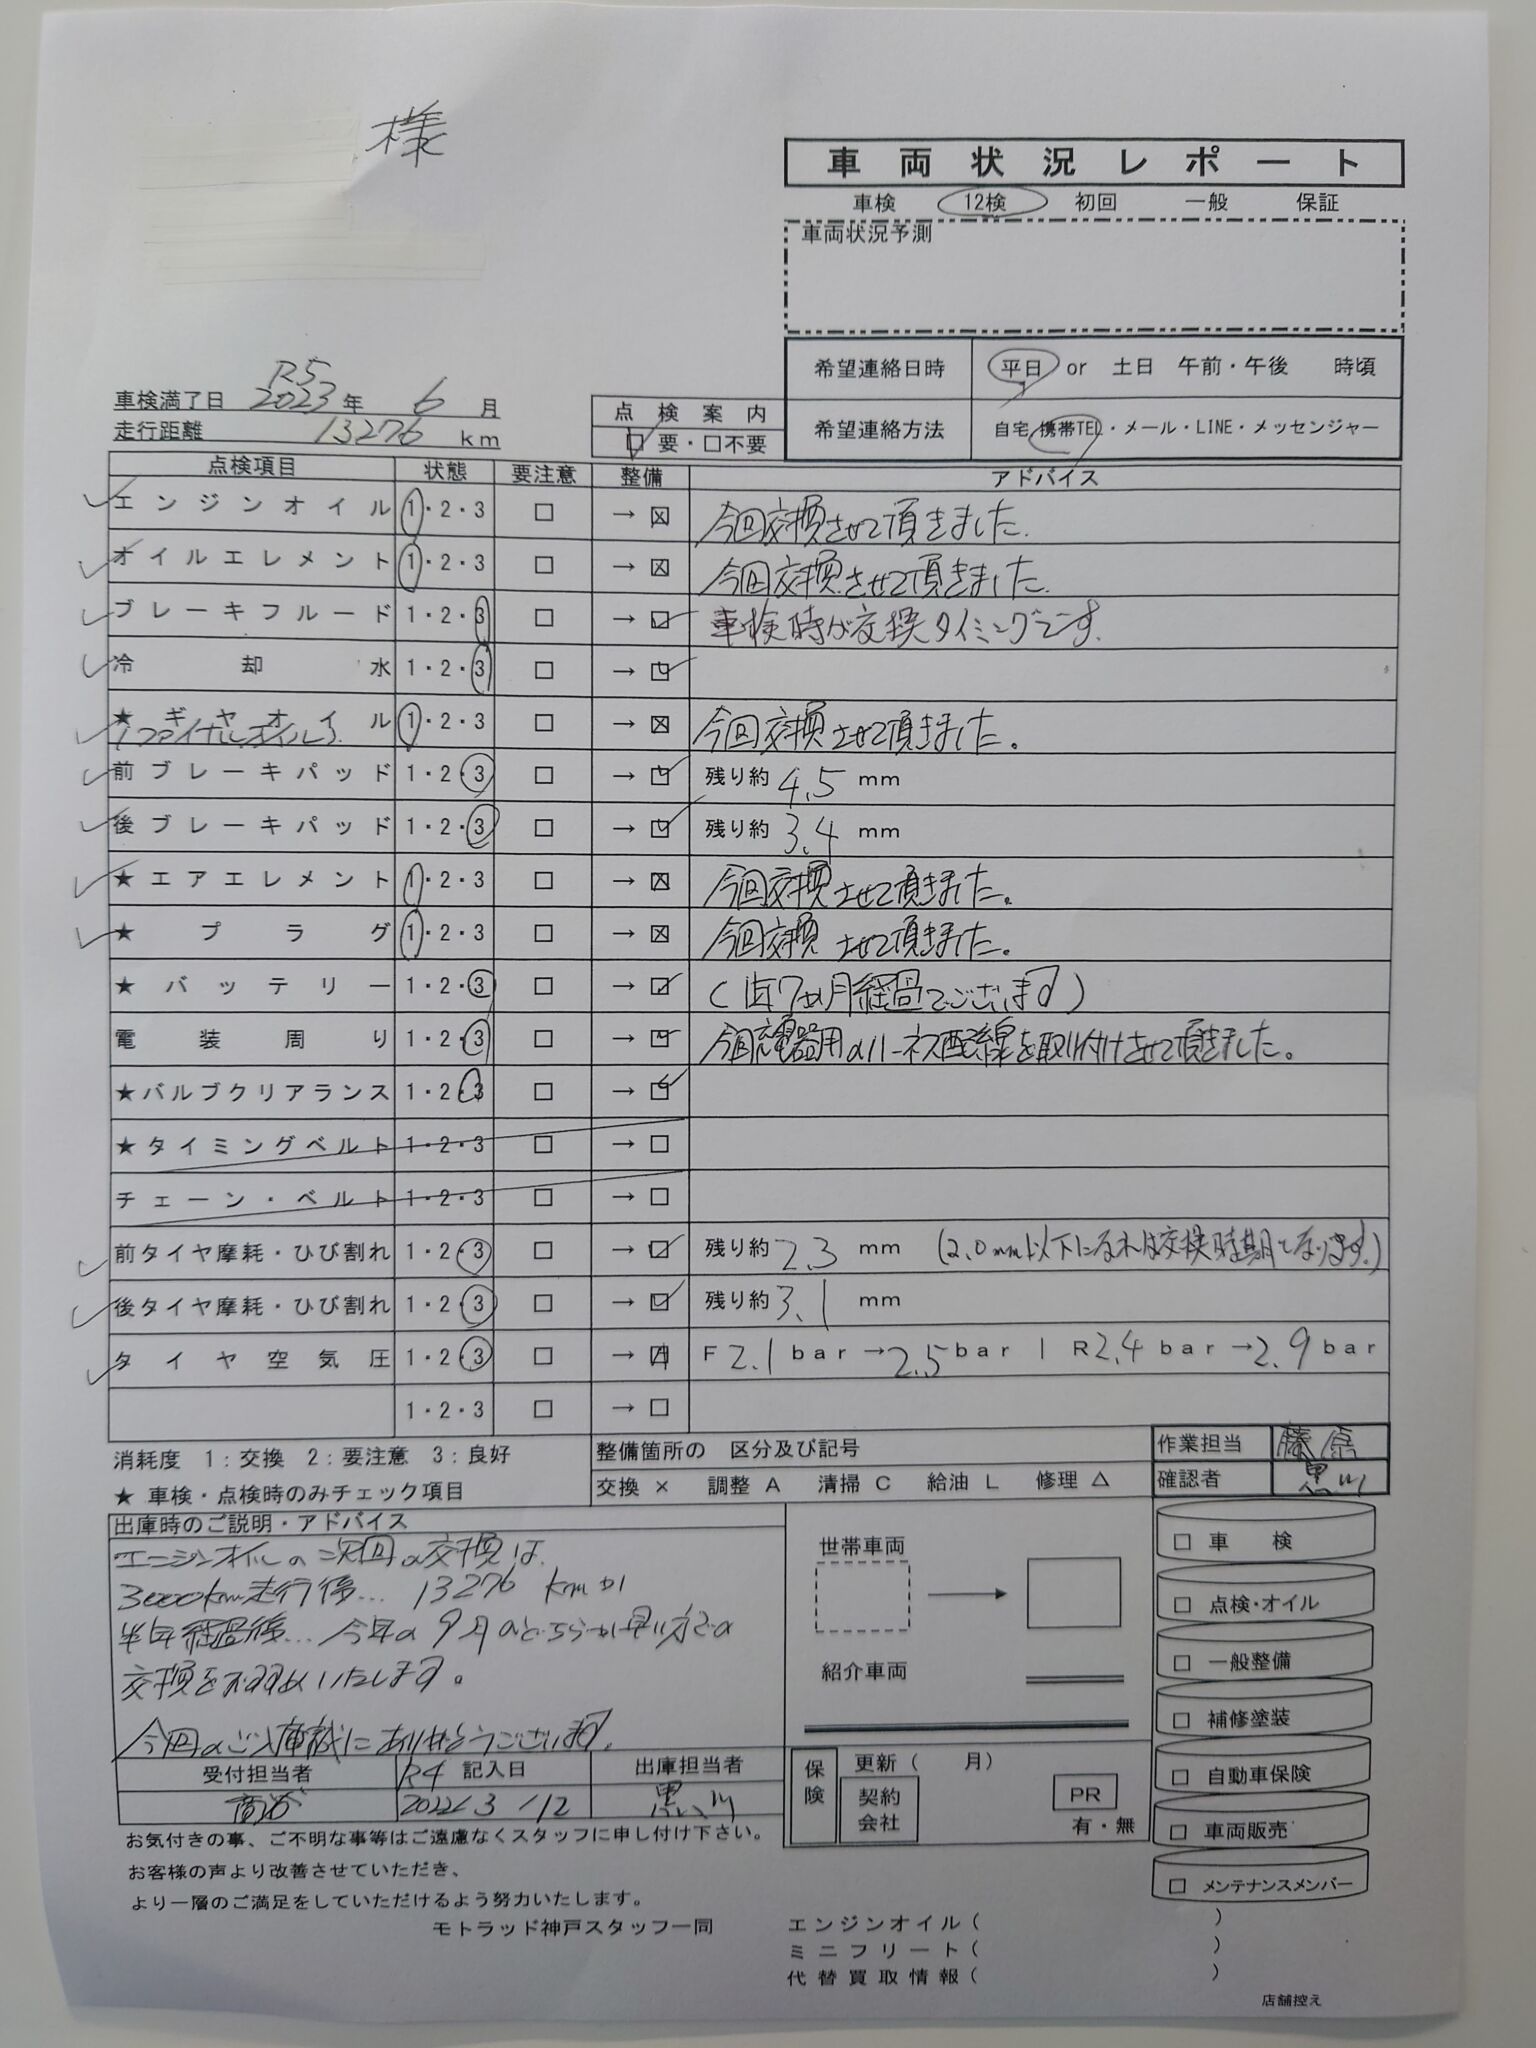 様
車両状況レポート
車検 12検 初回 一般 保証
車両状況予測
希望連絡日時 平日 or 土日 午前・午後 時頃
希望連絡方法 自宅 携帯TEL・メール・LINE・メッセンジャー
R5
車検満了日 2023年 6月
走行距離 13276 km
点検案内
□要・□不要
点検項目 状態 要注意 整備 アドバイス
エンジンオイル 1・2・3 □ →☒ 今回交換させて頂きました。
オイルエレメント 1・2・3 □ →☒ 今回交換させて頂きました。
ブレーキフルード 1・2・3 □ →□ 車検時が交換タイミングです。
冷却水 1・2・3 □ →□
★ギヤオイル 1・2・3 □ →☒ 今回交換させて頂きました。
(ファイナルオイル)
前ブレーキパッド 1・2・3 □ →□ 残り約 4.5 mm
後ブレーキパッド 1・2・3 □ →□ 残り約 3.4 mm
★エアエレメント 1・2・3 □ →☒ 今回交換させて頂きました。
★プラグ 1・2・3 □ →☒ 今回交換させて頂きました。
★バッテリー 1・2・3 □ →□ (1年7ヶ月経過でございます)
電装周り 1・2・3 □ →□ 今回充電器用のハーネス配線を取り付けさせて頂きました。
★バルブクリアランス 1・2・3 □ →□
★タイミングベルト 1・2・3 □ →□
チェーン・ベルト 1・2・3 □ →□
前タイヤ摩耗・ひび割れ 1・2・3 □ →□ 残り約 2.3 mm (2.0mm以下になれば交換時期となります。)
後タイヤ摩耗・ひび割れ 1・2・3 □ →□ 残り約 3.1 mm
タイヤ空気圧 1・2・3 □ →A F 2.1 bar→2.5 bar | R 2.4 bar→2.9 bar
1・2・3 □ →□
消耗度 1:交換 2:要注意 3:良好
★ 車検・点検時のみチェック項目
整備箇所の 区分及び記号
交換 × 調整 A 清掃 C 給油 L 修理 △
作業担当 藤原
確認者 黒川
出庫時のご説明・アドバイス
エンジンオイルの次回の交換は
3000km走行後… 13276 kmか
半年経過後… 今年の9月のどちらか早い方での
交換をお勧めいたします。
今回のご入庫誠にありがとうございます。
世帯車両
紹介車両
□ 車検
□ 点検・オイル
□ 一般整備
□ 補修塗装
□ 自動車保険
□ 車両販売
□ メンテナンスメンバー
受付担当者 R4 記入日 出庫担当者
2022/3/12 黒川
保険 更新( 月)
契約会社
PR
有・無
お気付きの事、ご不明な事等はご遠慮なくスタッフに申し付け下さい。
お客様の声より改善させていただき、
より一層のご満足をしていただけるよう努力いたします。
モトラッド神戸スタッフ一同
エンジンオイル( )
ミニフリート( )
代替買取情報( )
店舗控え